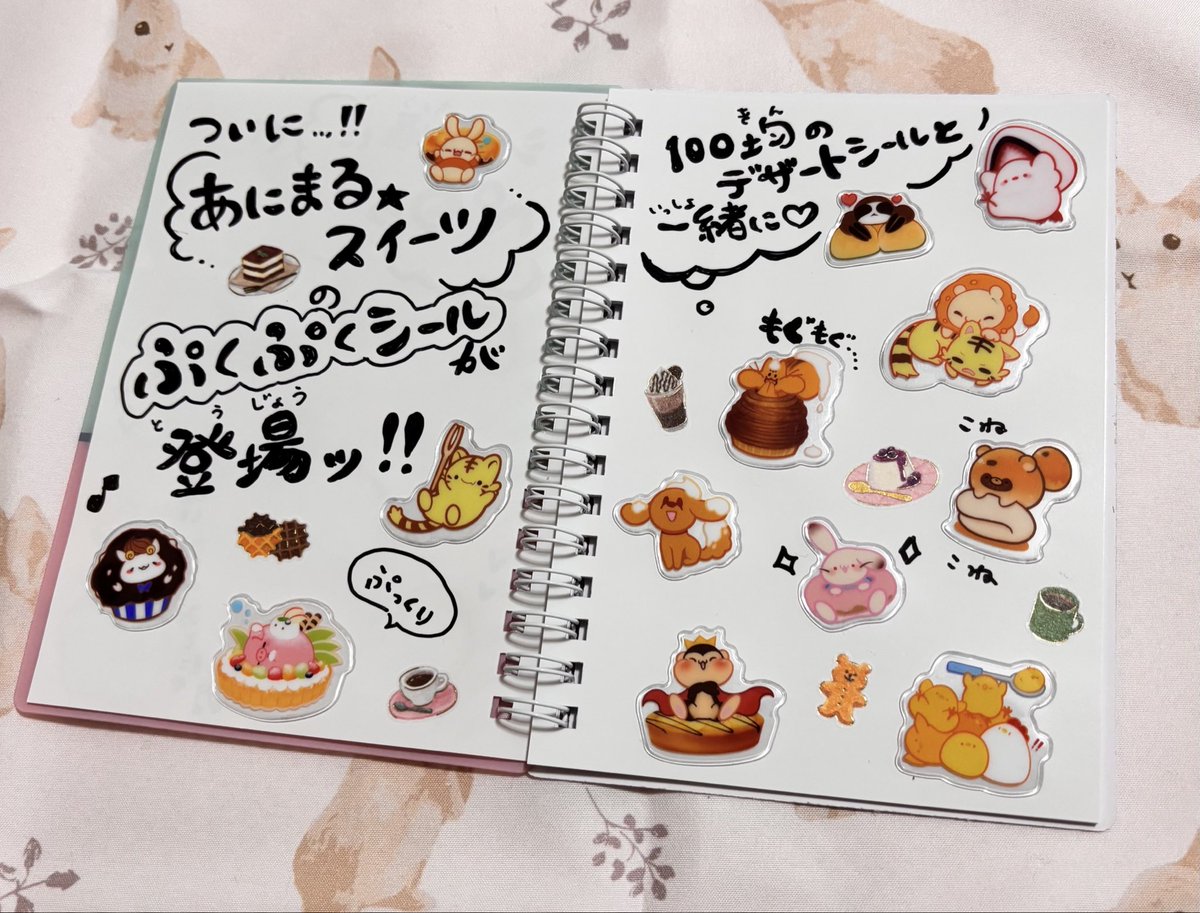 ついに…!!
あにまる★
スイーツ
の
ぷくぷくシールが
とうじょう
登場ッ!!
ぷっくり
きん
100均の
デザートシールと
いっしょ
一緒に♡
もぐもぐ…
こね
こね